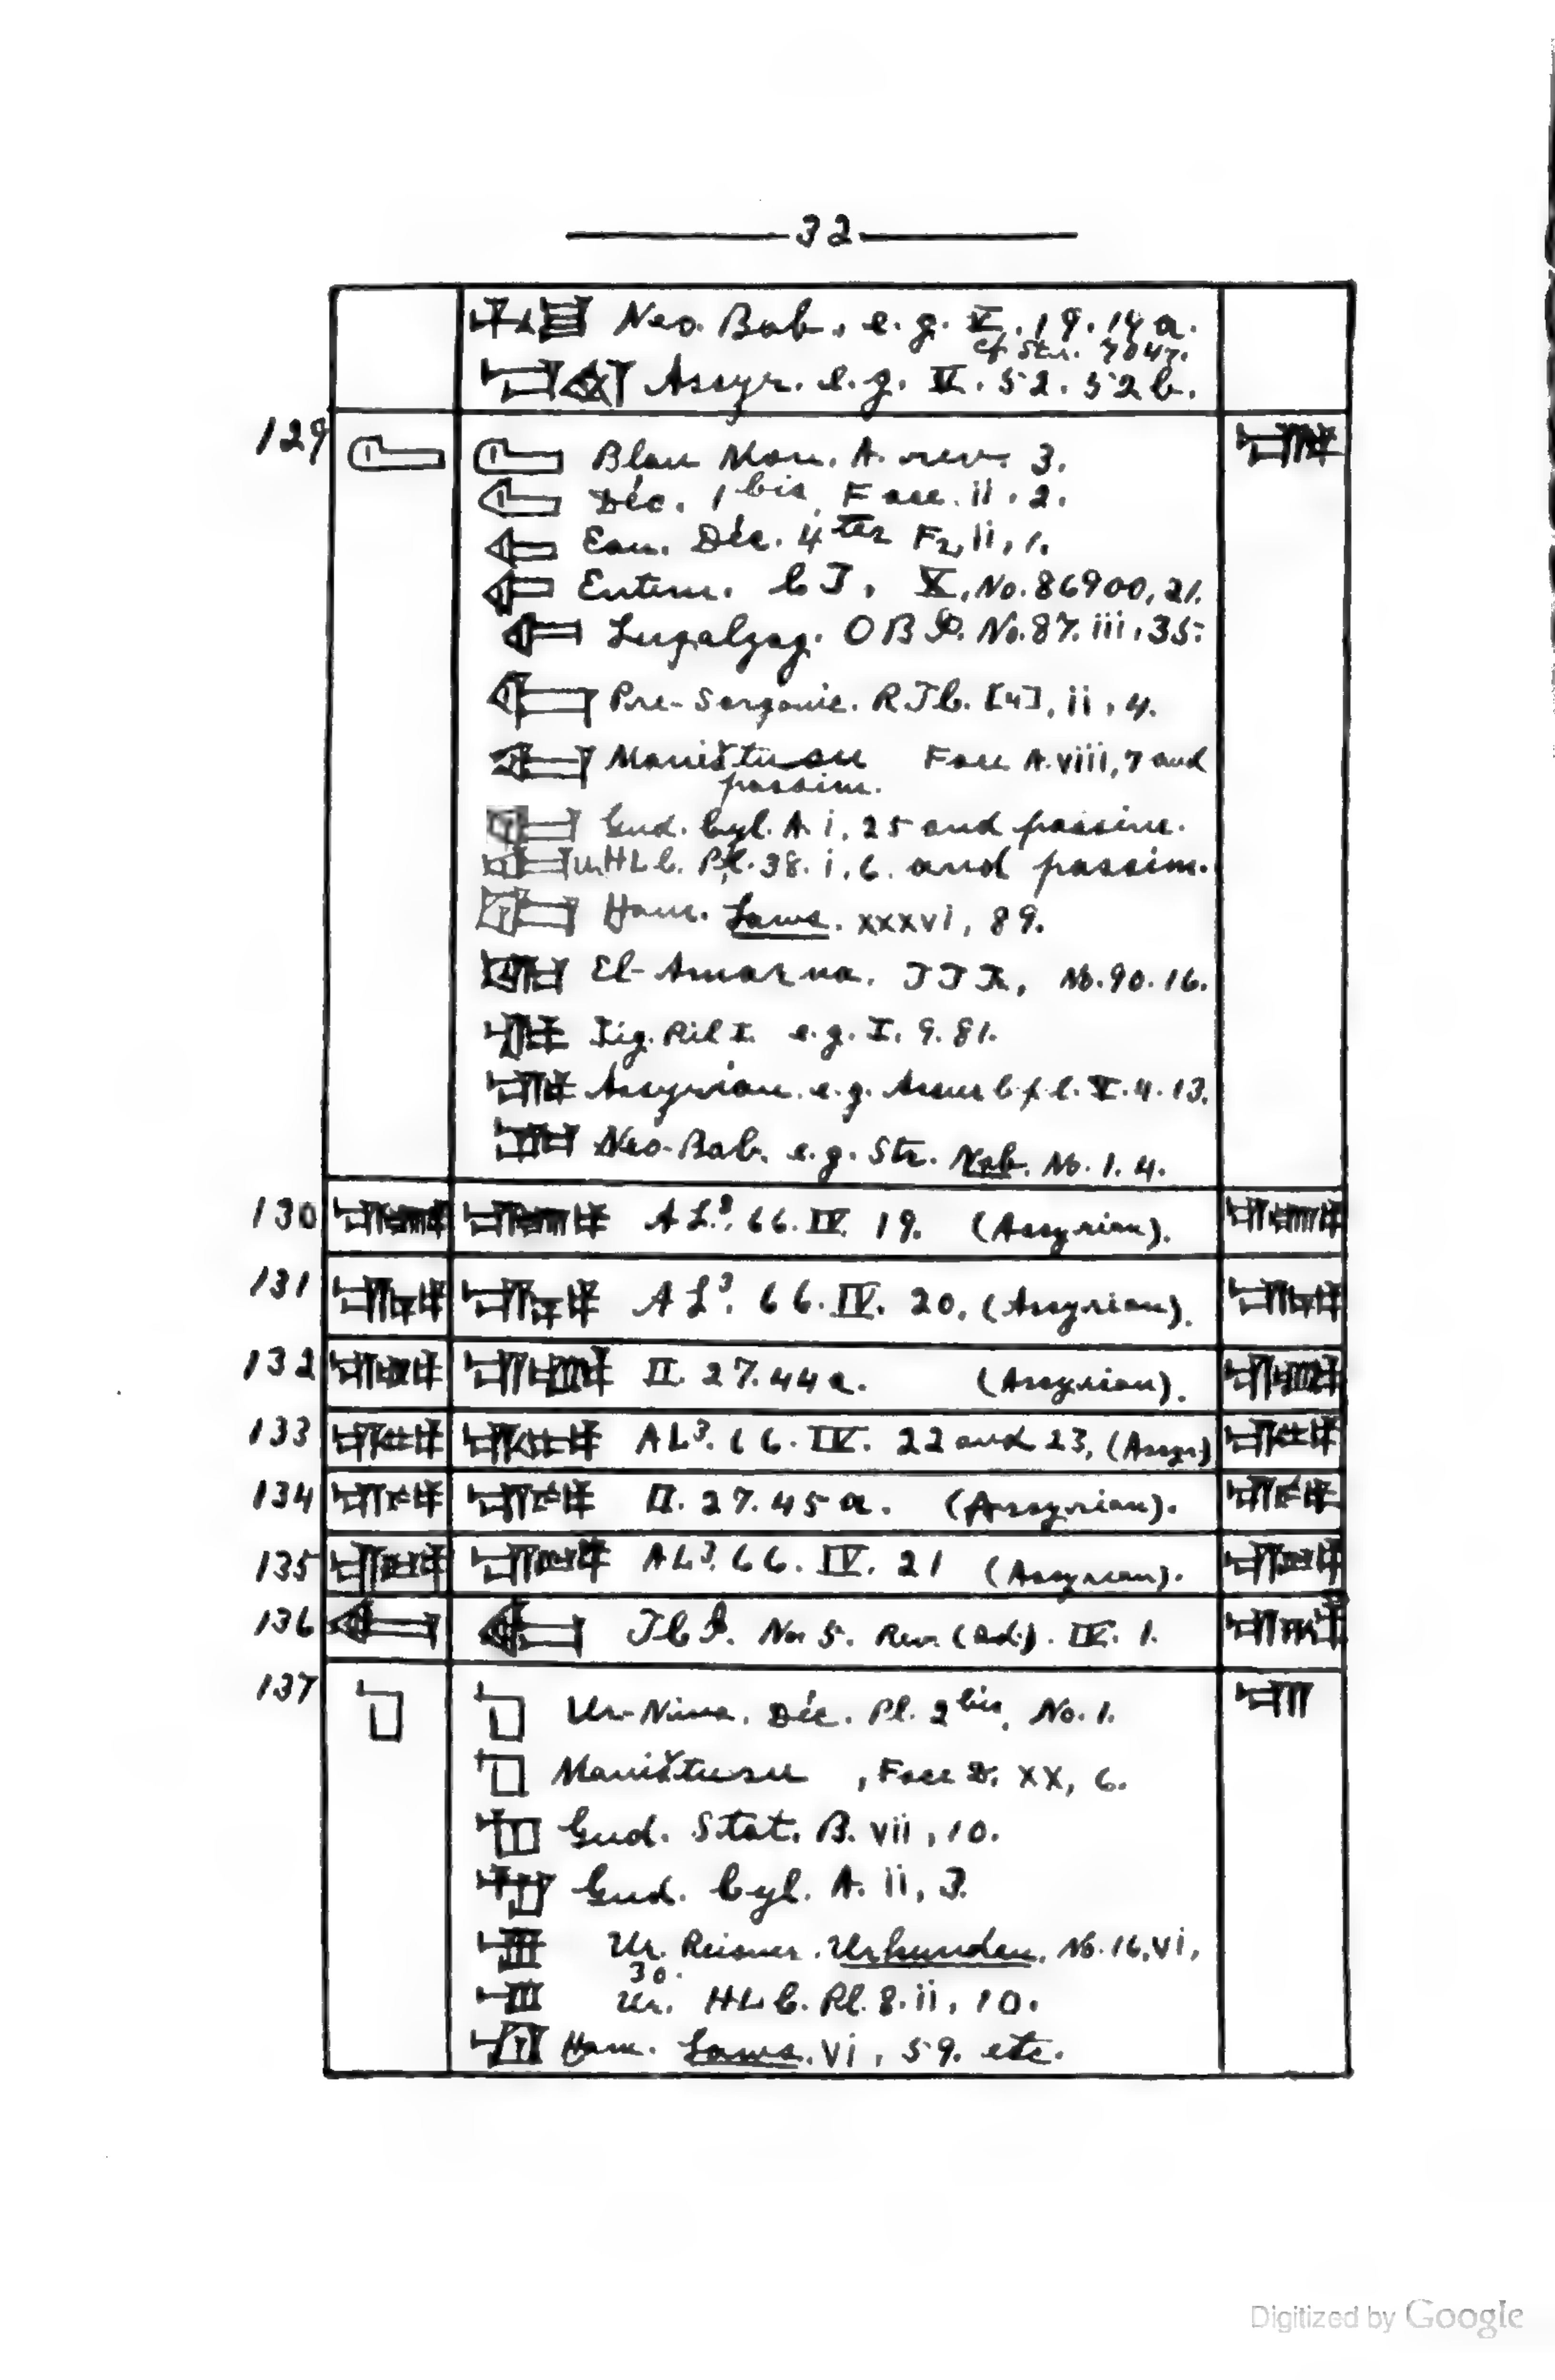 32
Neo. Bab. e.g. V. 19. 14a.
cf Str. 7047.
Assyr. e.g. IV. 52. 52b.
129
Blau Mon. A. rev. 3.
Déc. 1 bis, Face. ii. 2.
Ean. Déc. 4 ter F2, ii, 1.
Entem. CT, X, No. 86900, 21.
Lugalzag. OBI. No. 87. iii, 35.
Pre-Sargonic. RTC. [4], ii, 4.
Maništusu Face A. viii, 7 and
passim.
Gud. Cyl. A. i, 25 and passim.
Ur HLC. Pl. 38. i, 6. and passim.
Ham. Laws. xxxvi, 89.
El-Amarna. No. 90. 16.
Tig. Pil I. e.g. I. 9. 81.
Assyrian. e.g. V. 4. 13.
Neo-Bab. e.g. Str. Nab. No. 1. 4.
130 AL³. 66. IV. 19. (Assyrian).
131 AL³. 66. IV. 20. (Assyrian).
132 II. 27. 44a. (Assyrian).
133 AL³. 66. IV. 22 and 23, (Assyr.)
134 II. 27. 45a. (Assyrian).
135 AL³. 66. IV. 21 (Assyrian).
136 No 5. Rev. IV. 1.
137 Ur-Nina. Déc. Pl. 2 bis, No. 1.
Maništusu, Face D. xx, 6.
Gud. Stat. B. vii, 10.
Gud. Cyl. A. ii, 3.
Ur. Reisner. Urkunden. No. 16, vi,
30.
Ur. HLC. Pl. 8. ii, 10.
Ham. Laws. vi, 59. etc.
Digitized by Google